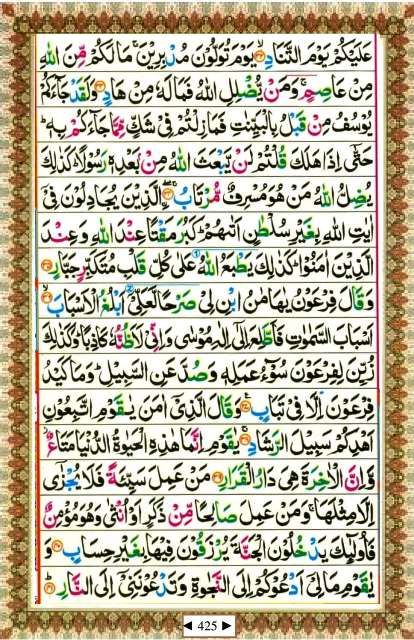 عَلَيۡكُمۡ يَوۡمَ التَّنَادِ ۙ﴿۳۲﴾ يَوۡمَ تُوَلُّوۡنَ مُدۡبِرِيۡنَ ۚ مَا لَكُمۡ مِّنَ اللّٰهِ
مِنۡ عَاصِمٍ ۚ وَمَنۡ يُّضۡلِلِ اللّٰهُ فَمَا لَهٗ مِنۡ هَادٍ ﴿۳۳﴾ وَلَقَدۡ جَآءَكُمۡ
يُوۡسُفُ مِنۡ قَبۡلُ بِالۡبَيِّنٰتِ فَمَا زِلۡتُمۡ فِىۡ شَكٍّ مِّمَّا جَآءَكُمۡ بِهٖ ؕ
حَتّٰٓى اِذَا هَلَكَ قُلۡتُمۡ لَنۡ يَّبۡعَثَ اللّٰهُ مِنۡۢ بَعۡدِهٖ رَسُوۡلًا ؕ كَذٰلِكَ
يُضِلُّ اللّٰهُ مَنۡ هُوَ مُسۡرِفٌ مُّرۡتَابُ ۚ ۖ﴿۳۴﴾ اۨلَّذِيۡنَ يُجَادِلُوۡنَ فِىۡۤ
اٰيٰتِ اللّٰهِ بِغَيۡرِ سُلۡطٰنٍ اَتٰٮهُمۡ ؕ كَبُرَ مَقۡتًا عِنۡدَ اللّٰهِ وَعِنۡدَ
الَّذِيۡنَ اٰمَنُوۡا ؕ كَذٰلِكَ يَطۡبَعُ اللّٰهُ عَلٰى كُلِّ قَلۡبِ مُتَكَبِّرٍ جَبَّارٍ ﴿۳۵﴾
وَقَالَ فِرۡعَوۡنُ يٰهَامٰنُ ابۡنِ لِىۡ صَرۡحًا لَّعَلِّىۡۤ اَبۡلُغُ الۡاَسۡبَابَ ۙ﴿۳۶﴾
اَسۡبَابَ السَّمٰوٰتِ فَاَطَّلِعَ اِلٰٓى اِلٰهِ مُوۡسٰى وَاِنِّىۡ لَاَظُنُّهٗ كَاذِبًا ؕ وَكَذٰلِكَ
زُيِّنَ لِفِرۡعَوۡنَ سُوۡٓءُ عَمَلِهٖ وَصُدَّ عَنِ السَّبِيۡلِ ؕ وَمَا كَيۡدُ
فِرۡعَوۡنَ اِلَّا فِىۡ تَبَابٍ ﴿۳۷﴾ وَقَالَ الَّذِىۡۤ اٰمَنَ يٰقَوۡمِ اتَّبِعُوۡنِ
اَهۡدِكُمۡ سَبِيۡلَ الرَّشَادِ ۚ﴿۳۸﴾ يٰقَوۡمِ اِنَّمَا هٰذِهِ الۡحَيٰوةُ الدُّنۡيَا مَتَاعٌ ۫
وَّاِنَّ الۡاٰخِرَةَ هِىَ دَارُ الۡقَرَارِ ﴿۳۹﴾ مَنۡ عَمِلَ سَيِّئَةً فَلَا يُجۡزٰٓى
اِلَّا مِثۡلَهَا ۚ وَمَنۡ عَمِلَ صَالِحًا مِّنۡ ذَكَرٍ اَوۡ اُنۡثٰى وَهُوَ مُؤۡمِنٌ
فَاُولٰٓٮِٕكَ يَدۡخُلُوۡنَ الۡجَنَّةَ يُرۡزَقُوۡنَ فِيۡهَا بِغَيۡرِ حِسَابٍ ﴿۴۰﴾ وَ
يٰقَوۡمِ مَا لِىۡۤ اَدۡعُوۡكُمۡ اِلَى النَّجٰوةِ وَتَدۡعُوۡنَنِىۡۤ اِلَى النَّارِ ؕ﴿۴۱﴾
◄ 425 ►